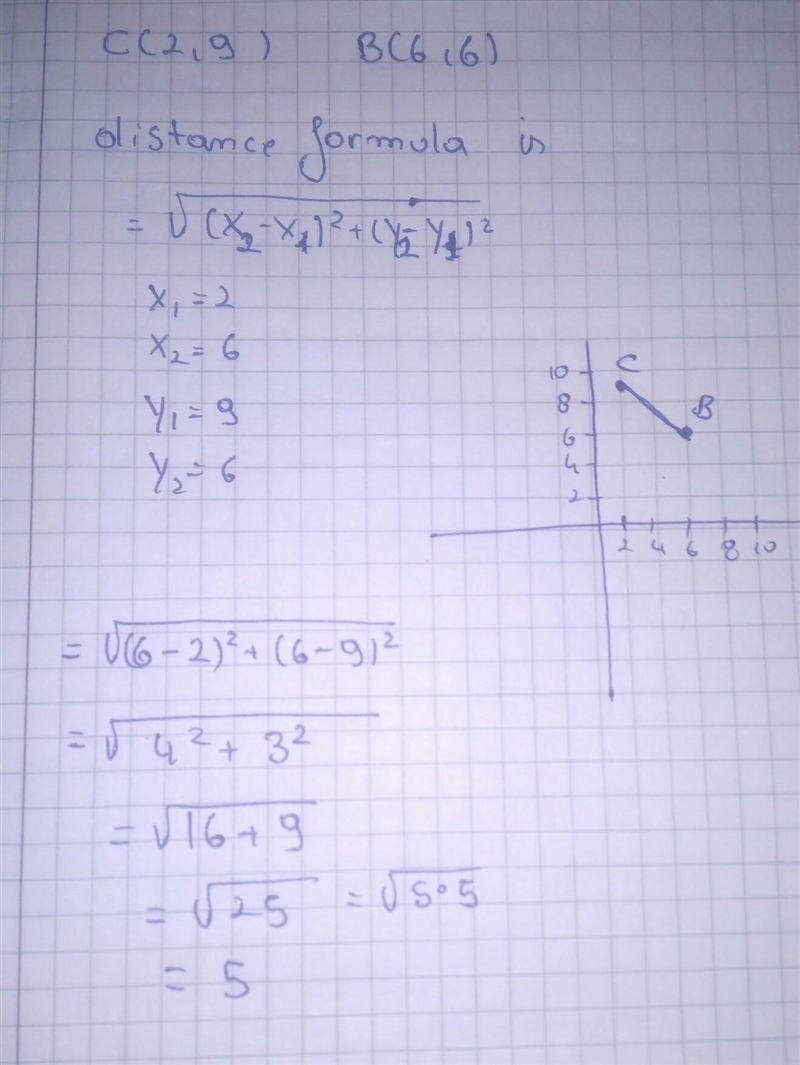 C(2,9) B(6,6)
distance formula is
= √(x₂-x₁)²+(y₂-y₁)²
x₁ = 2
x₂ = 6
y₁ = 9
y₂ = 6
10 C
8 B
6
4
2
2 4 6 8 10
= √(6-2)²+(6-9)²
= √4²+3²
= √16+9
= √25 = √5·5
= 5